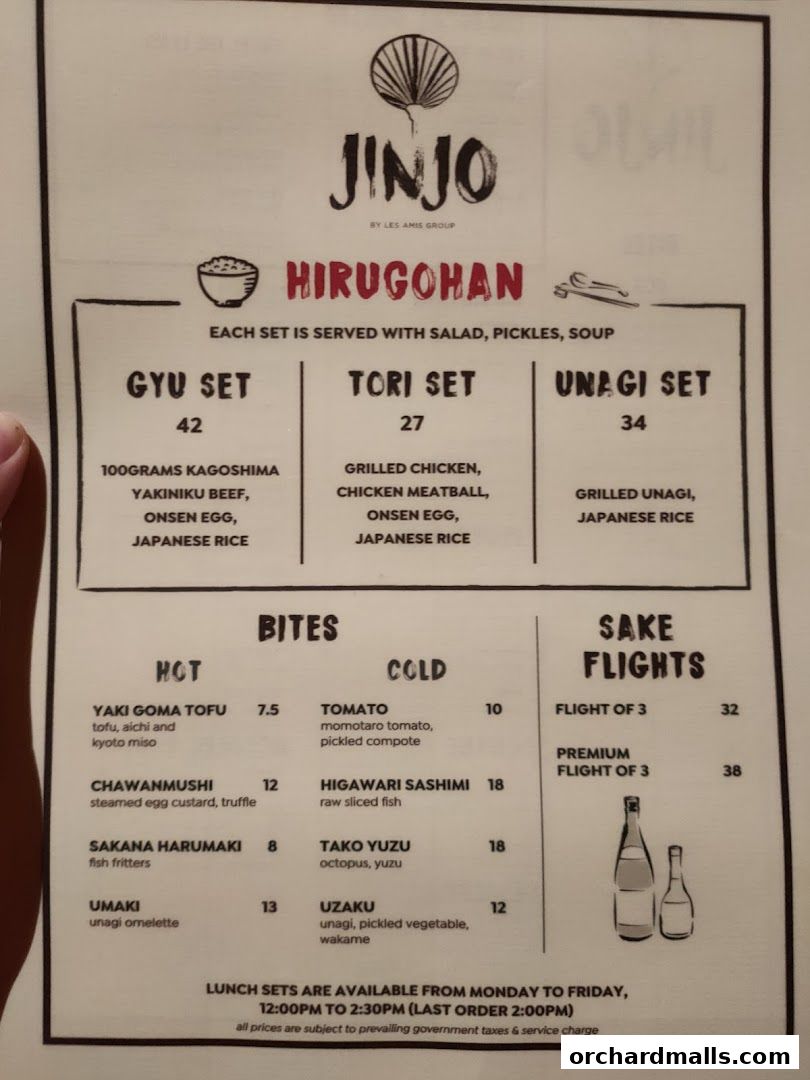 JINJO
BY LES AMIS GROUP
HIRUGOHAN
EACH SET IS SERVED WITH SALAD, PICKLES, SOUP
GYU SET
42
100GRAMS KAGOSHIMA
YAKINIKU BEEF,
ONSEN EGG,
JAPANESE RICE
TORI SET
27
GRILLED CHICKEN,
CHICKEN MEATBALL,
ONSEN EGG,
JAPANESE RICE
UNAGI SET
34
GRILLED UNAGI,
JAPANESE RICE
BITES
HOT
YAKI GOMA TOFU 7.5
tofu, aichi and
kyoto miso
CHAWANMUSHI 12
steamed egg custard, truffle
SAKANA HARUMAKI 8
fish fritters
UMAKI 13
unagi omelette
COLD
TOMATO 10
momotaro tomato,
pickled compote
HIGAWARI SASHIMI 18
raw sliced fish
TAKO YUZU 18
octopus, yuzu
UZAKU 12
unagi, pickled vegetable,
wakame
SAKE
FLIGHTS
FLIGHT OF 3 32
PREMIUM
FLIGHT OF 3 38
LUNCH SETS ARE AVAILABLE FROM MONDAY TO FRIDAY,
12:00PM TO 2:30PM (LAST ORDER 2:00PM)
all prices are subject to prevailing government taxes & service charge
orchardmalls.com